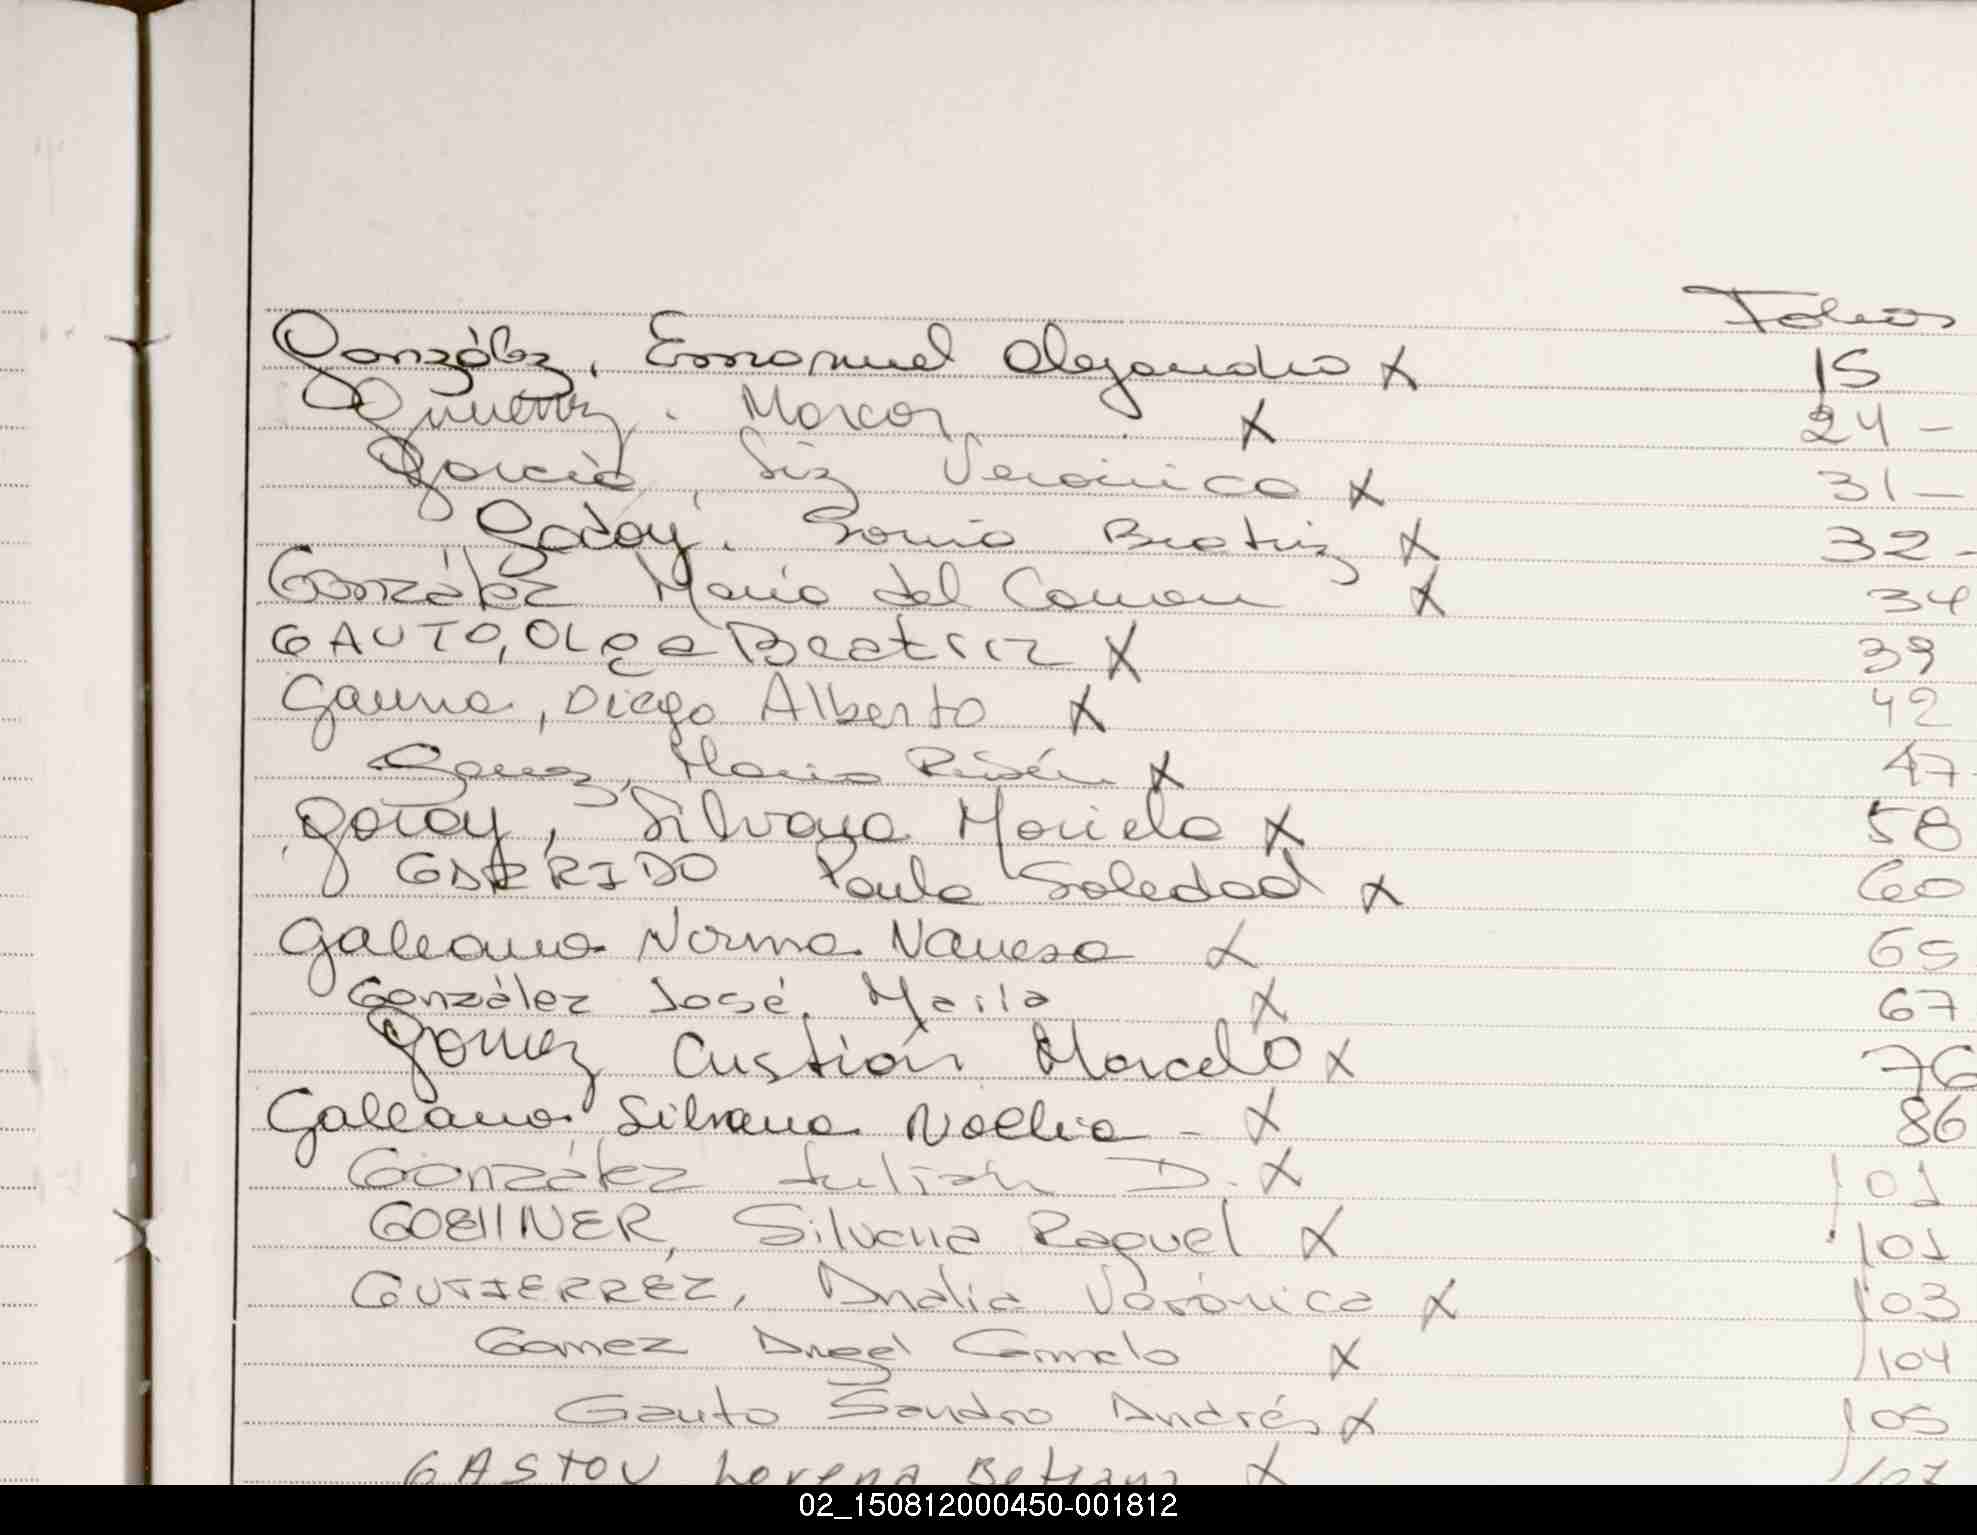 Folios
González, Emmanuel Alejandro X 15
Gimenez, Marcos X 24 -
García, Liz Verónica X 31 -
Godoy, Sonia Beatriz X 32 -
González María del Carmen X 34
GAUTO, OLga Beatriz X 39
Gauna, Diego Alberto X 42
Gomez, Mario Rubén X 47
Godoy, Silvana Mariela X 58
GARRIDO Paula Soledad X 60
Galeano Norma Vanesa X 65
González José María X 67
Gomez Cristian Marcelo X 76
Galeano Silvana Noelia - X 86
González Julián D. X 101
GOELLNER, Silvana Raquel X 101
GUTIERREZ, Analia Verónica X 103
Gomez Angel Carmelo X 104
Gauto Sandro Andrés X 105
GASTOU Lorena Betiana X 107
02_150812000450-001812